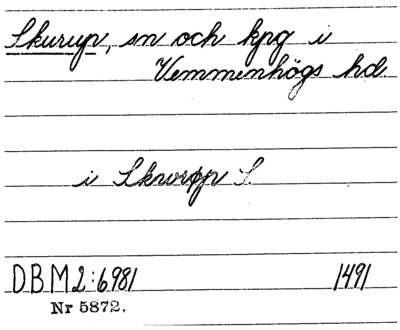 Skurup, sn och kpg i
Vemmenhögs hd
i Skworpp S.
DBM 2:6981 1491
Nr 5872.